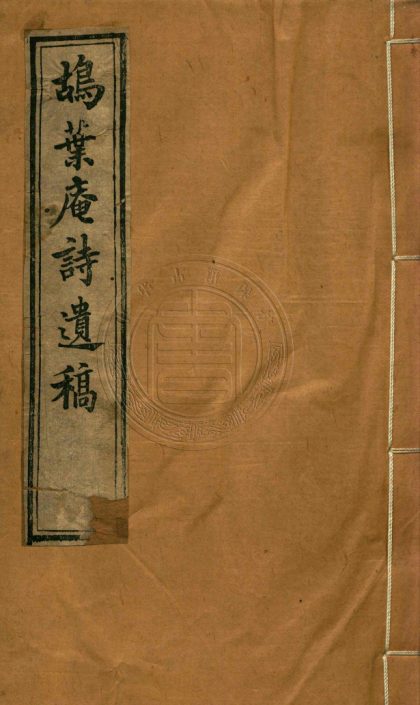 鴣葉庵詩遺稿